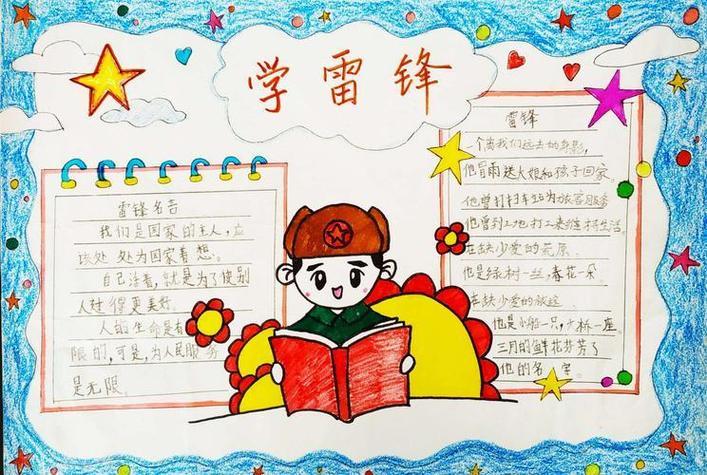 学雷锋
雷锋名言
我们是国家的主人,应
该处处为国家着想。
自己活着,就是为了使别
人过得更美好。
人的生命是有
限的,可是,为人民服务
是无限
雷锋
一个离我们远去的身影,
他冒雨送大娘和孩子回家
他曾打扫车站为旅客服务
他曾到工地打工来
生活
在缺少爱的荒原
他是绿树一丝,春花一朵
在缺少爱的旅途
他是小船一只,大桥一座。
三月的鲜花芬芳了
他的名字